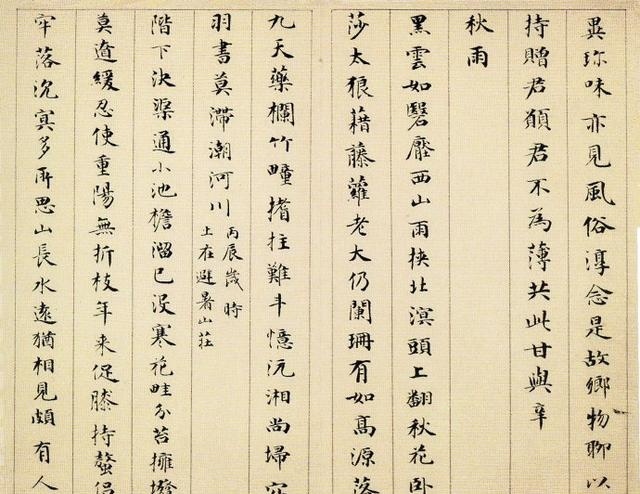 異珎味亦見風俗淳念是故鄉物聊以
持贈君願君不為薄共此甘與辛
秋雨
黑雲如翳壓西山雨挾北溟頭上翻秋花卧
莎太狼藉藤蘿老大仍闌珊有如高源落
九天藥欄竹疃撐拄難斗憶沅湘尚埽
羽書莫滯潮河川
丙辰歲時
上在避暑山莊
階下決渠通小池檐溜已没寒花畦分苔擁
莫遣緩忍使重陽無折枝年来促膝持螯侣
牢落沉寞多所思山長水遠猶相見頗有人